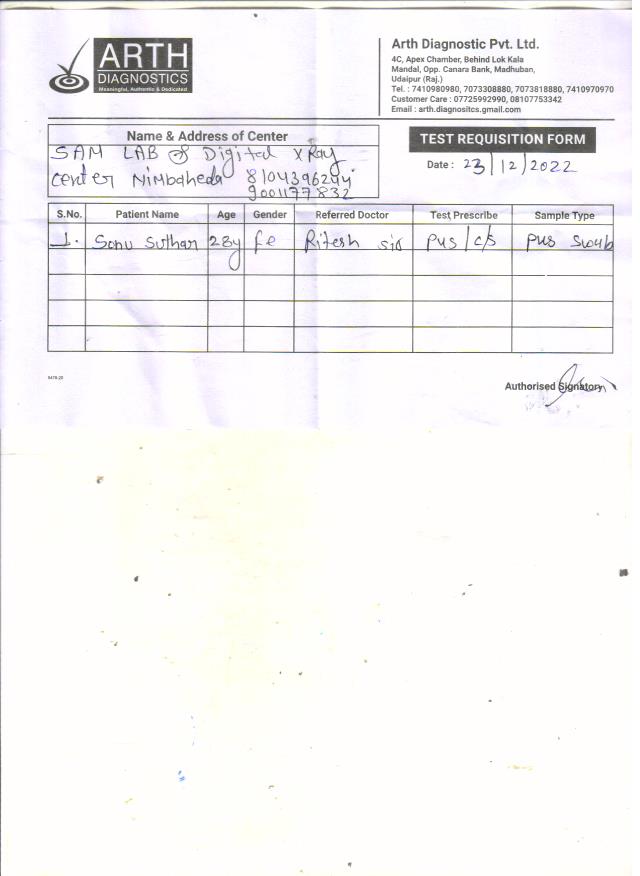 ARTH
DIAGNOSTICS
Meaningful, Authentic & Dedicated
Arth Diagnostic Pvt. Ltd.
4C, Apex Chamber, Behind Lok Kala
Mandal, Opp. Canara Bank, Madhuban,
Udaipur (Raj.)
Tel. : 7410980980, 7073308880, 7073818880, 7410970970
Customer Care : 07725992990, 08107753342
Email : arth.diagnositcs.gmail.com
Name & Address of Center
SAM LAB & Digital X Ray
center Nimbaheda
9001177832
TEST REQUISITION FORM
Date : 23/12/2022
S.No. Patient Name Age Gender Referred Doctor Test Prescribe Sample Type
1. Sonu Suthar 28y fe Ritesh sir Pus/c/s Pus Swab
Authorised Signatory